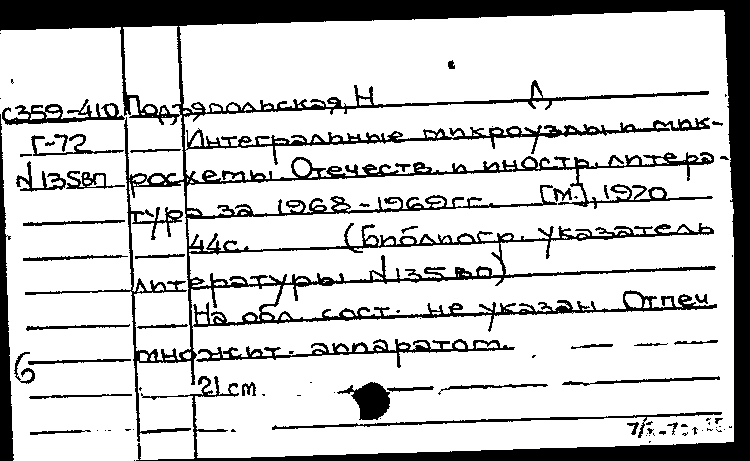 с359-410 Подъяпольская, Н Л,
Г-72 Интегральные микроузлы и мик-
N 135вп росхемы. Отечеств. и иностр. литера-
тура за 1968-1969гг. [М.], 1970
44с. (Библиогр. указатель
литературы N135вп)
На обл. сост. не указан. Отпеч.
множит. аппаратом.
6
21 cm.